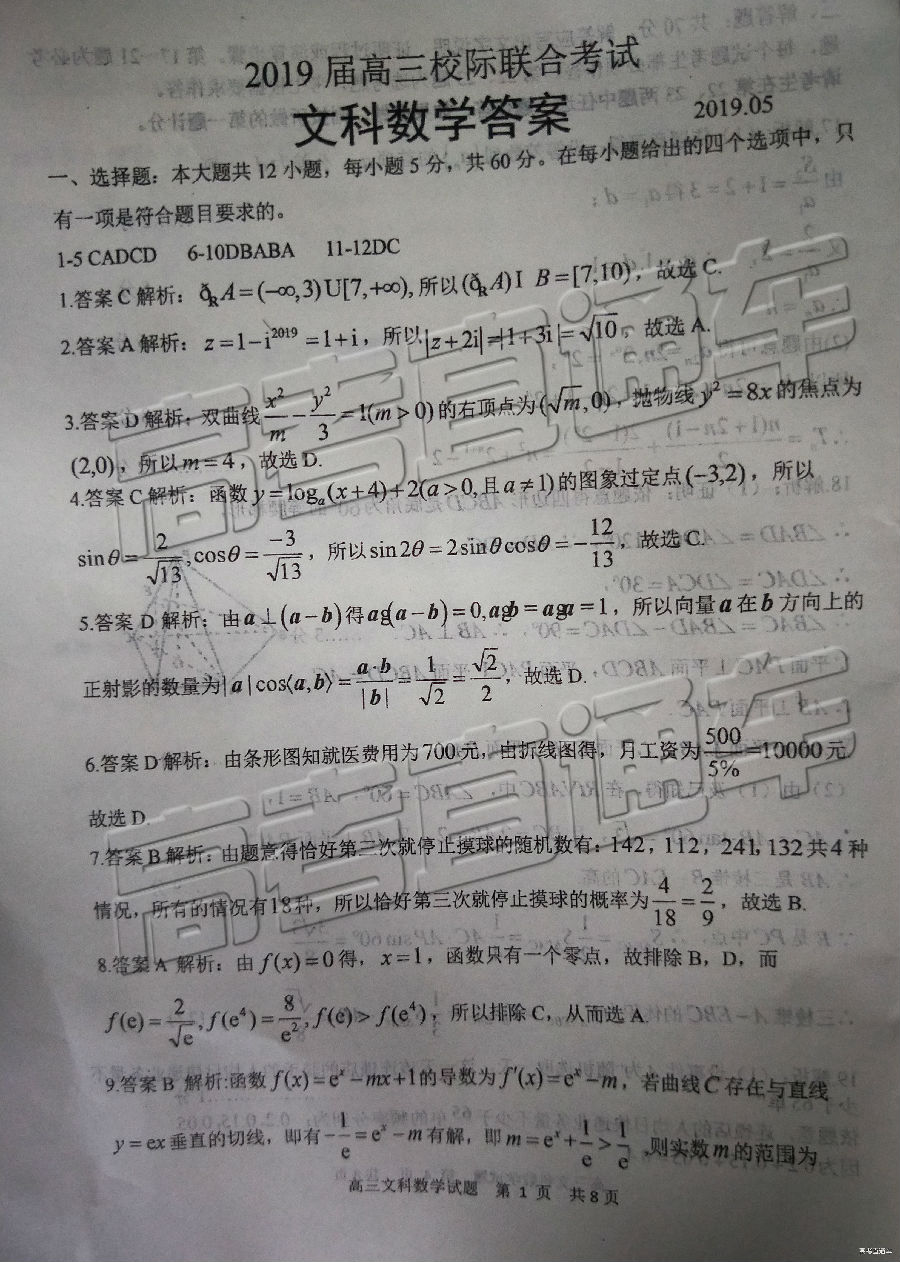 2019 届高三校际联合考试
文科数学答案
2019.05
一、选择题：本大题共 12 小题，每小题 5 分，共 60 分。在每小题给出的四个选项中，只
有一项是符合题目要求的。
1-5 CADCD 6-10DBABA 11-12DC
1.答案 C 解析： ð_R A=(−∞,3)U[7,+∞), 所以 (ð_R A) I B=[7,10)，故选 C.
2.答案 A 解析： z=1−i^2019=1+i，所以|z+2i|=|1+3i|=√10，故选 A.
3.答案 D 解析：双曲线 x²/m − y²/3 =1(m>0) 的右顶点为(√m,0)，抛物线 y²=8x 的焦点为
(2,0)，所以 m=4，故选 D.
4.答案 C 解析：函数 y=log_a(x+4)+2(a>0,且a≠1) 的图象过定点(−3,2)，所以
sinθ=2/√13,cosθ=−3/√13，所以 sin2θ=2sinθcosθ=−12/13，故选 C.
5.答案 D 解析：由 a⊥(a−b) 得 ag(a−b)=0,agb=aga=1，所以向量 a 在 b 方向上的
正射影的数量为|a|cos⟨a,b⟩=a·b/|b|=1/√2=√2/2，故选 D.
6.答案 D 解析：由条形图知就医费用为 700 元，由折线图得，月工资为 500/5%=10000 元
故选 D.
7.答案 B 解析：由题意得恰好第三次就停止摸球的随机数有：142，112，241，132 共 4 种
情况，所有的情况有18种，所以恰好第三次就停止摸球的概率为 4/18=2/9，故选 B.
8.答案 A 解析：由 f(x)=0 得，x=1，函数只有一个零点，故排除 B，D，而
f(e)=2/√e,f(e⁴)=8/e²,f(e)>f(e⁴)，所以排除 C，从而选 A.
9.答案 B 解析:函数 f(x)=e^x−mx+1的导数为 f′(x)=e^x−m，若曲线 C 存在与直线
y=ex 垂直的切线，即有 −1/e=e^x−m 有解，即 m=e^x+1/e>1/e,则实数 m 的范围为
高三文科数学试题 第 1 页 共 8 页
高考直通车